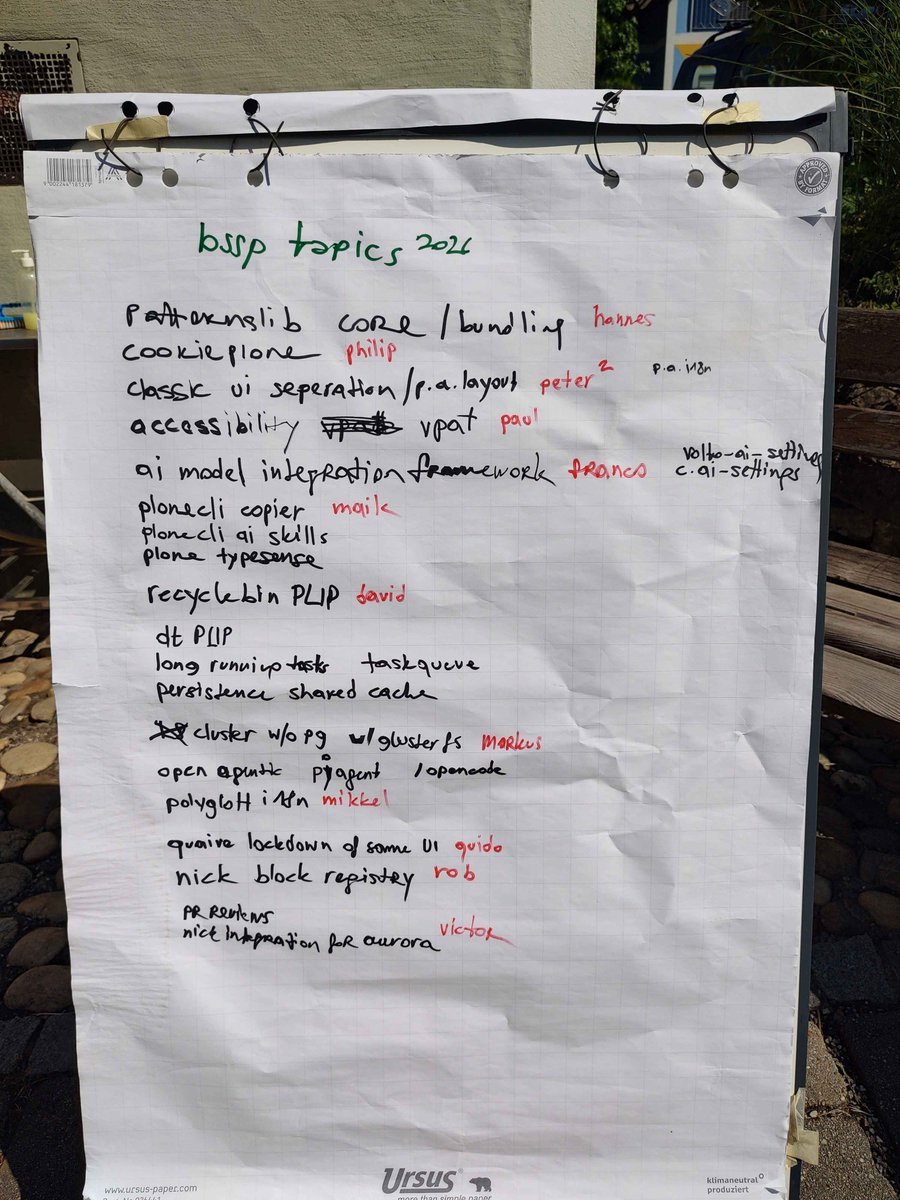 9002244181379
APPROVED BY FORMAT
bssp topics 2026
Patternslib core / bundling hannes
cookieplone philip
classic ui seperation / p.a.layout peter² p.a.i18n
accessibility vpat paul
volto-ai-settings
ai model integration framework franco c.ai-settings
plonecli copier maik
plonecli ai skills
plone typesense
recyclebin PLIP david
dt PLIP
long running tasks taskqueue
persistence shared cache
cluster w/o pg w/ glusterfs markus
open agentic pi agent /opencode
polyglott i18n mikkel
quaive lockdown of some UI guido
nick block registry rob
PR Reviews
nick integration for aurora victor
www.ursus-paper.com
Ursus®
more than simple paper
klimaneutral
produziert